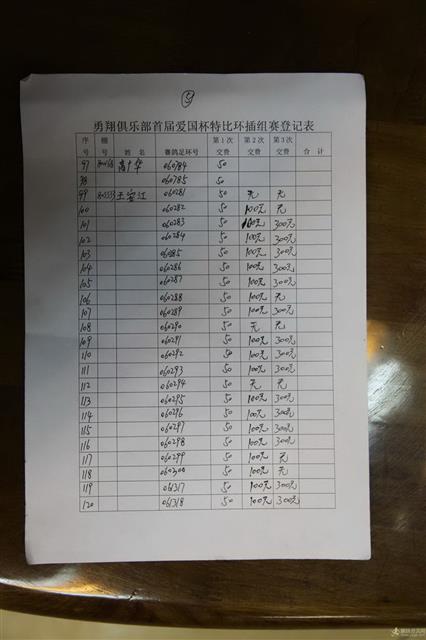 勇翔俱乐部首届爱国杯特比环插组赛登记表
序号 棚号 姓名 赛鸽足环号 第1次交费 第2次交费 第3次交费 合计
97 060784 50
98 060785 50
99 王安江 060281 50 无 无
100 060282 50 100元 无
101 060283 50 100元 300元
102 060284 50 100元 300元
103 060285 50 100元 300元
104 060286 50 100元 300元
105 060287 50 100元 300元
106 060288 50 100元 无
107 060289 50 100元 300元
108 060290 50 无 无
109 060291 50 100元 300元
110 060292 50 100元 300元
111 060293 50 100元 300元
112 060294 50 无 无
113 060295 50 100元 300元
114 060296 50 100元 300元
115 060297 50 100元 300元
116 060298 50 100元 300元
117 060299 50 100元 无
118 060300 50 100元 无
119 061317 50 100元 300元
120 061318 50 100元 300元